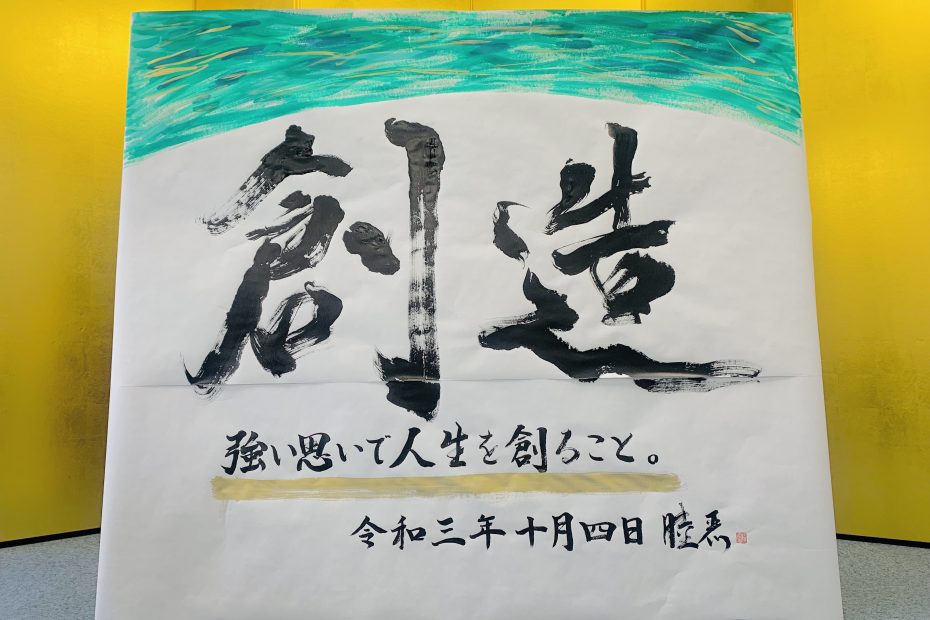 創造
強い思いで人生を創ること。
令和三年十月四日